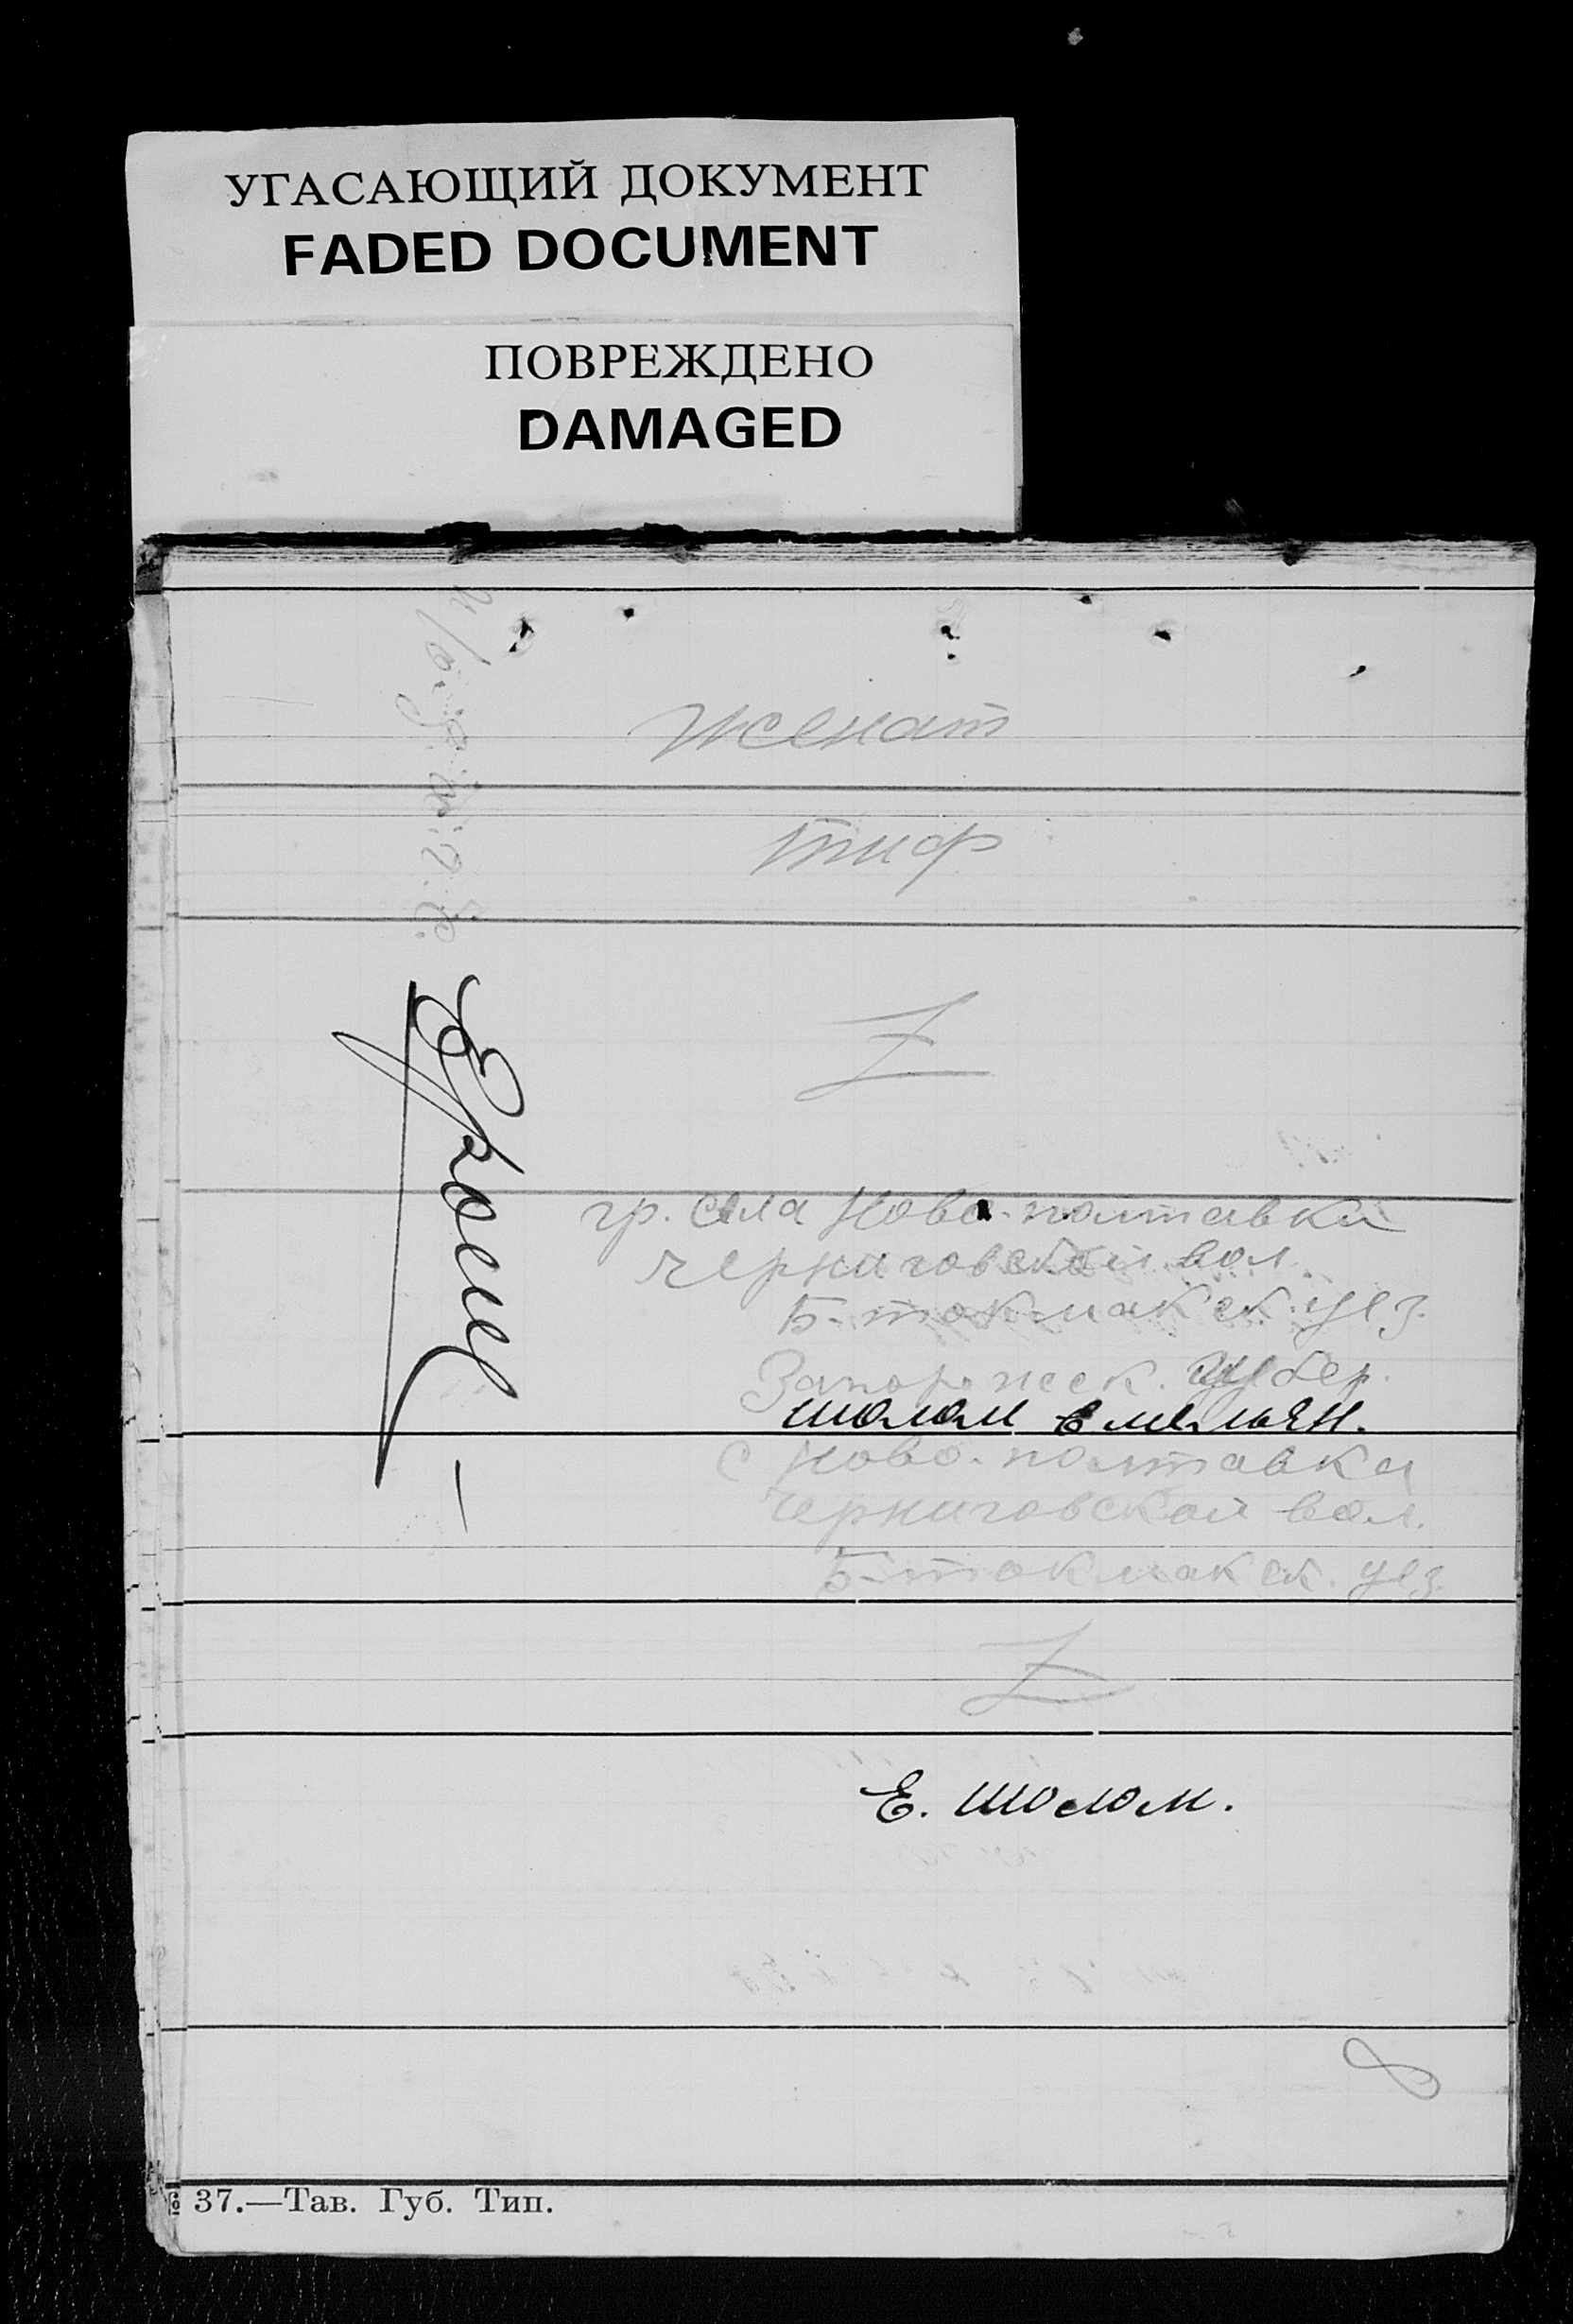 УГАСАЮЩИЙ ДОКУМЕНТ
FADED DOCUMENT
ПОВРЕЖДЕНО
DAMAGED
женат
тиф
Z
гр. села Ново-полтавки
Черниговской вол.
Б-токмакск. уез.
Запорожск. губер.
Шолом Емельян.
с Ново-полтавка
Черниговской вол.
Б-токмакск. уез.
Z
Е. Шолом.
8
37.—Тав. Губ. Тип.